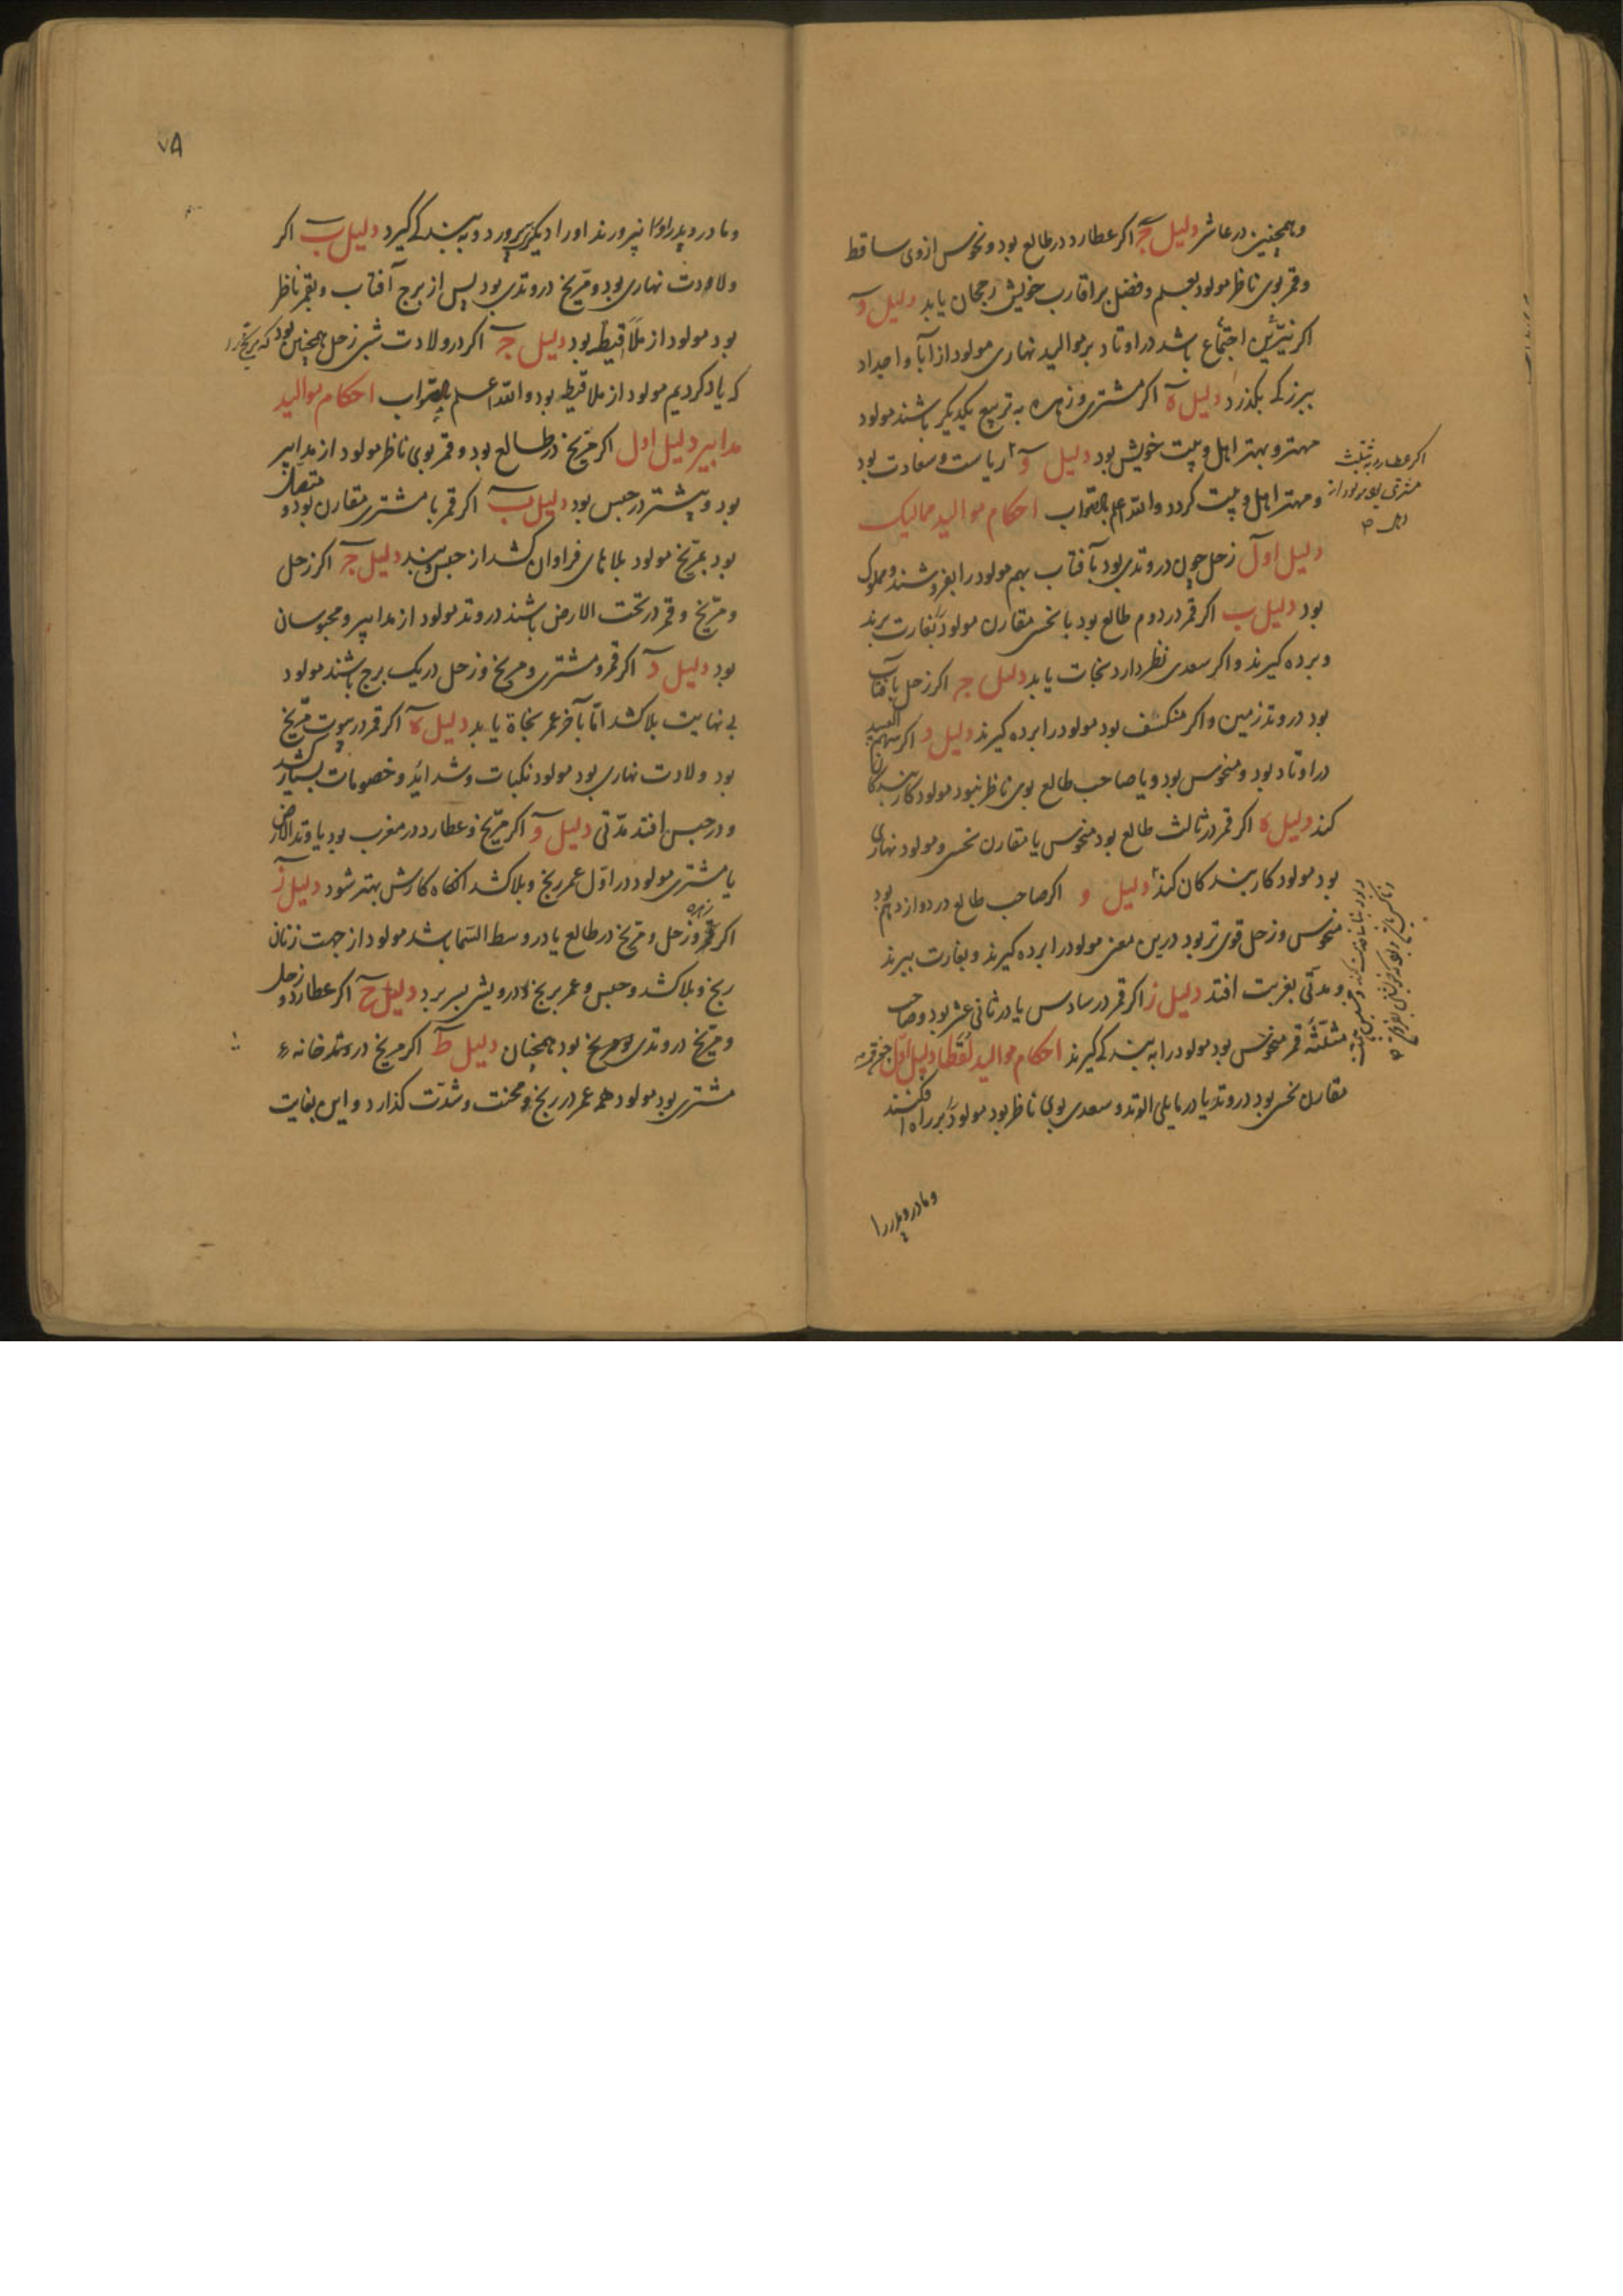 و همچنین در عاشر دلیل ج اکر عطارد در طالع بود و نحوس از وی ساقط
و قمر بوی ناظر مولود بعلم و فضل بر اقارب خویش رجحان یابد دلیل د
اکر نیّرین اجتماع باشد در اوتاد بر موالید نهاری مولود از آبا و اجداد
ببزرکی بکذرد دلیل ه اکر مشتری و زهره به تربیع یکدیکر باشند مولود
مهتر و بهتر اهل و بیت خویش بود دلیل و ریاست و سعادت بود
اکر عطارد به تثلیث
مشتری بود مولود از
و مهتر اهل و بیت کردد والله اعلم بالصّواب احکام موالید ممالیک
دلیل اول زحل چون در وتدی بود بآفتاب بهم مولود را بفروشند و مملوک
بود دلیل ب اکر قمر در دوم طالع بود با نحس مقارن مولود بغارت برند
و برده کیرند و اکر سعدی نظر دارد نجات یابد دلیل ج اکر زحل با آفتاب
بود در وتد زمین و اکر منکسف بود مولود را برده کیرند دلیل د اکر سهم العبید
در اوتاد بود و منحوس بود و یا صاحب طالع بوی ناظر نبود مولود کار بندکان
کند دلیل ه اکر قمر در ثالث طالع بود منحوس یا مقارن نحس و مولود نهاری
بود مولود کار بندکان کند دلیل و اکر صاحب طالع در دوازدهم بود
منحوس و زحل قوی تر بود درین معنی مولود را برده کیرند و بغارت ببرند
و مدتی بغربت افتد دلیل ز اکر قمر در سادس یا در ثانی عشر بود و صاحب
مثلّثه قمر منحوس بود مولود را به بندکی کیرند احکام موالید لقطا دلیل اول چون قمر
مقارن نحس بود در وتد یا در مایلی الوتد و سعدی بوی ناظر بود مولود بر راه افکنند
و مادر و پدر را
٧٨
و مادر و پدر او را نپرورند او را دیکری پرورد و به بندکی کیرد دلیل ب اکر
ولادت نهاری بود و مرّیخ در وتدی بود پس از برج آفتاب و بقمر ناظر
بود مولود از ملاقیط بود دلیل ج اکر در ولادت شبی زحل همچنین بود که مریخ را
که یاد کردیم مولود از ملاقیط بود والله اعلم بالصّواب احکام موالید
مدابیر دلیل اول اکر مرّیخ در طالع بود و قمر بوی ناظر مولود از مدابیر
بود و بیشتر در حبس بود دلیل ب اکر قمر با مشتری مقارن بود و متصل
بود بمرّیخ مولود بلاهای فراوان کشد از حبس و بند دلیل ج اکر زحل
و مرّیخ و قمر در تحت الارض باشند در وتد مولود از مدابیر و محبوسان
بود دلیل د اکر قمر و مشتری و مریخ و زحل در یک برج باشند مولود
بی نهایت بلا کشد امّا بآخر عمر نجاة یابد دلیل ه اکر قمر در بیوت مرّیخ
بود ولادت نهاری بود مولود نکبات و شداید و خصومات بسیار کشد
و در حبس افتد مدّتی دلیل و اکر مرّیخ و عطارد در مغرب بود یا وتد الارض
یا مشتری مولود در اوّل عمر رنج و بلا کشد آنکاه کارش بهتر شود دلیل ز
اکر زهره و زحل و مرّیخ در طالع یا در وسط السّما باشد مولود از جهت زنان
رنج و بلا کشد و حبس و عمر برنج و درویشی بسر برد دلیل ح اکر عطارد و زحل
و مرّیخ در وتدی بود همچنان دلیل ط اکر مریخ در وتد خانه
مشتری بود مولود همه عمر در رنج و محنت و شدّت کذارد و این بغایت